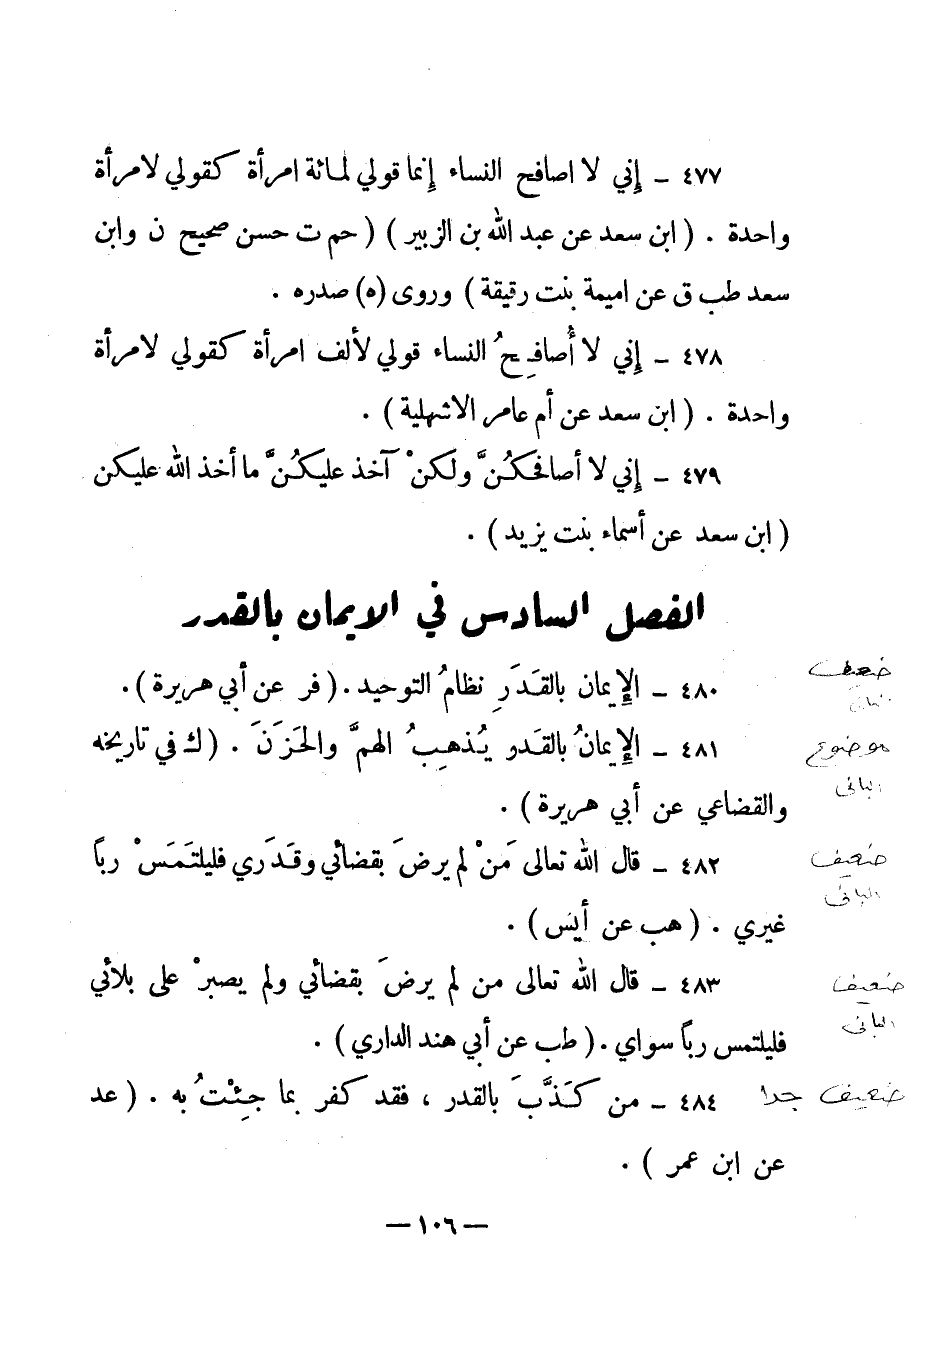 ٤٧٧ – إني لا اصافح النساء إنما قولي لمائة امرأة كقولي لامرأة
واحدة . ( ابن سعد عن عبد الله بن الزبير ) ( حم ت حسن صحيح ن وابن
سعد طب ق عن اميمة بنت رقيقة ) وروى (ه) صدره .
٤٧٨ – إني لا أُصافِحُ النساء قولي لألف امرأة كقولي لامرأة
واحدة . ( ابن سعد عن أم عامر الاشهلية ) .
٤٧٩ – إني لا أصافحكُنَّ ولكنْ آخذ عليكُنَّ ما أخذ الله عليكن
( ابن سعد عن أسماء بنت يزيد ) .
الفصل السادس في الايمان بالقدر
٤٨٠ – الإيمان بالقَدَرِ نظامُ التوحيد . ( فر عن أبي هريرة ) .
ضعيف
٤٨١ – الإيمانُ بالقدو يُذهِبُ الهمَّ والحَزَنَ . ( ك في تاريخه
موضوع
الباني
والقضاعي عن أبي هريرة ) .
٤٨٢ – قال الله تعالى مَنْ لم يرضَ بقضائي وقَدَري فليلتَمَسْ رباً
ضعيف
الباني
غيري . ( هب عن أيس ) .
٤٨٣ – قال الله تعالى من لم يرضَ بقضائي ولم يصبرْ على بلائي
ضعيف
الباني
فليلتمس رباً سواي . ( طب عن أبي هند الداري ) .
٤٨٤ – من كَذَّبَ بالقدر ، فقد كفر بما جِئْتُ به . ( عد
ضعيف جدا
عن ابن عمر ) .
— ١٠٦ —